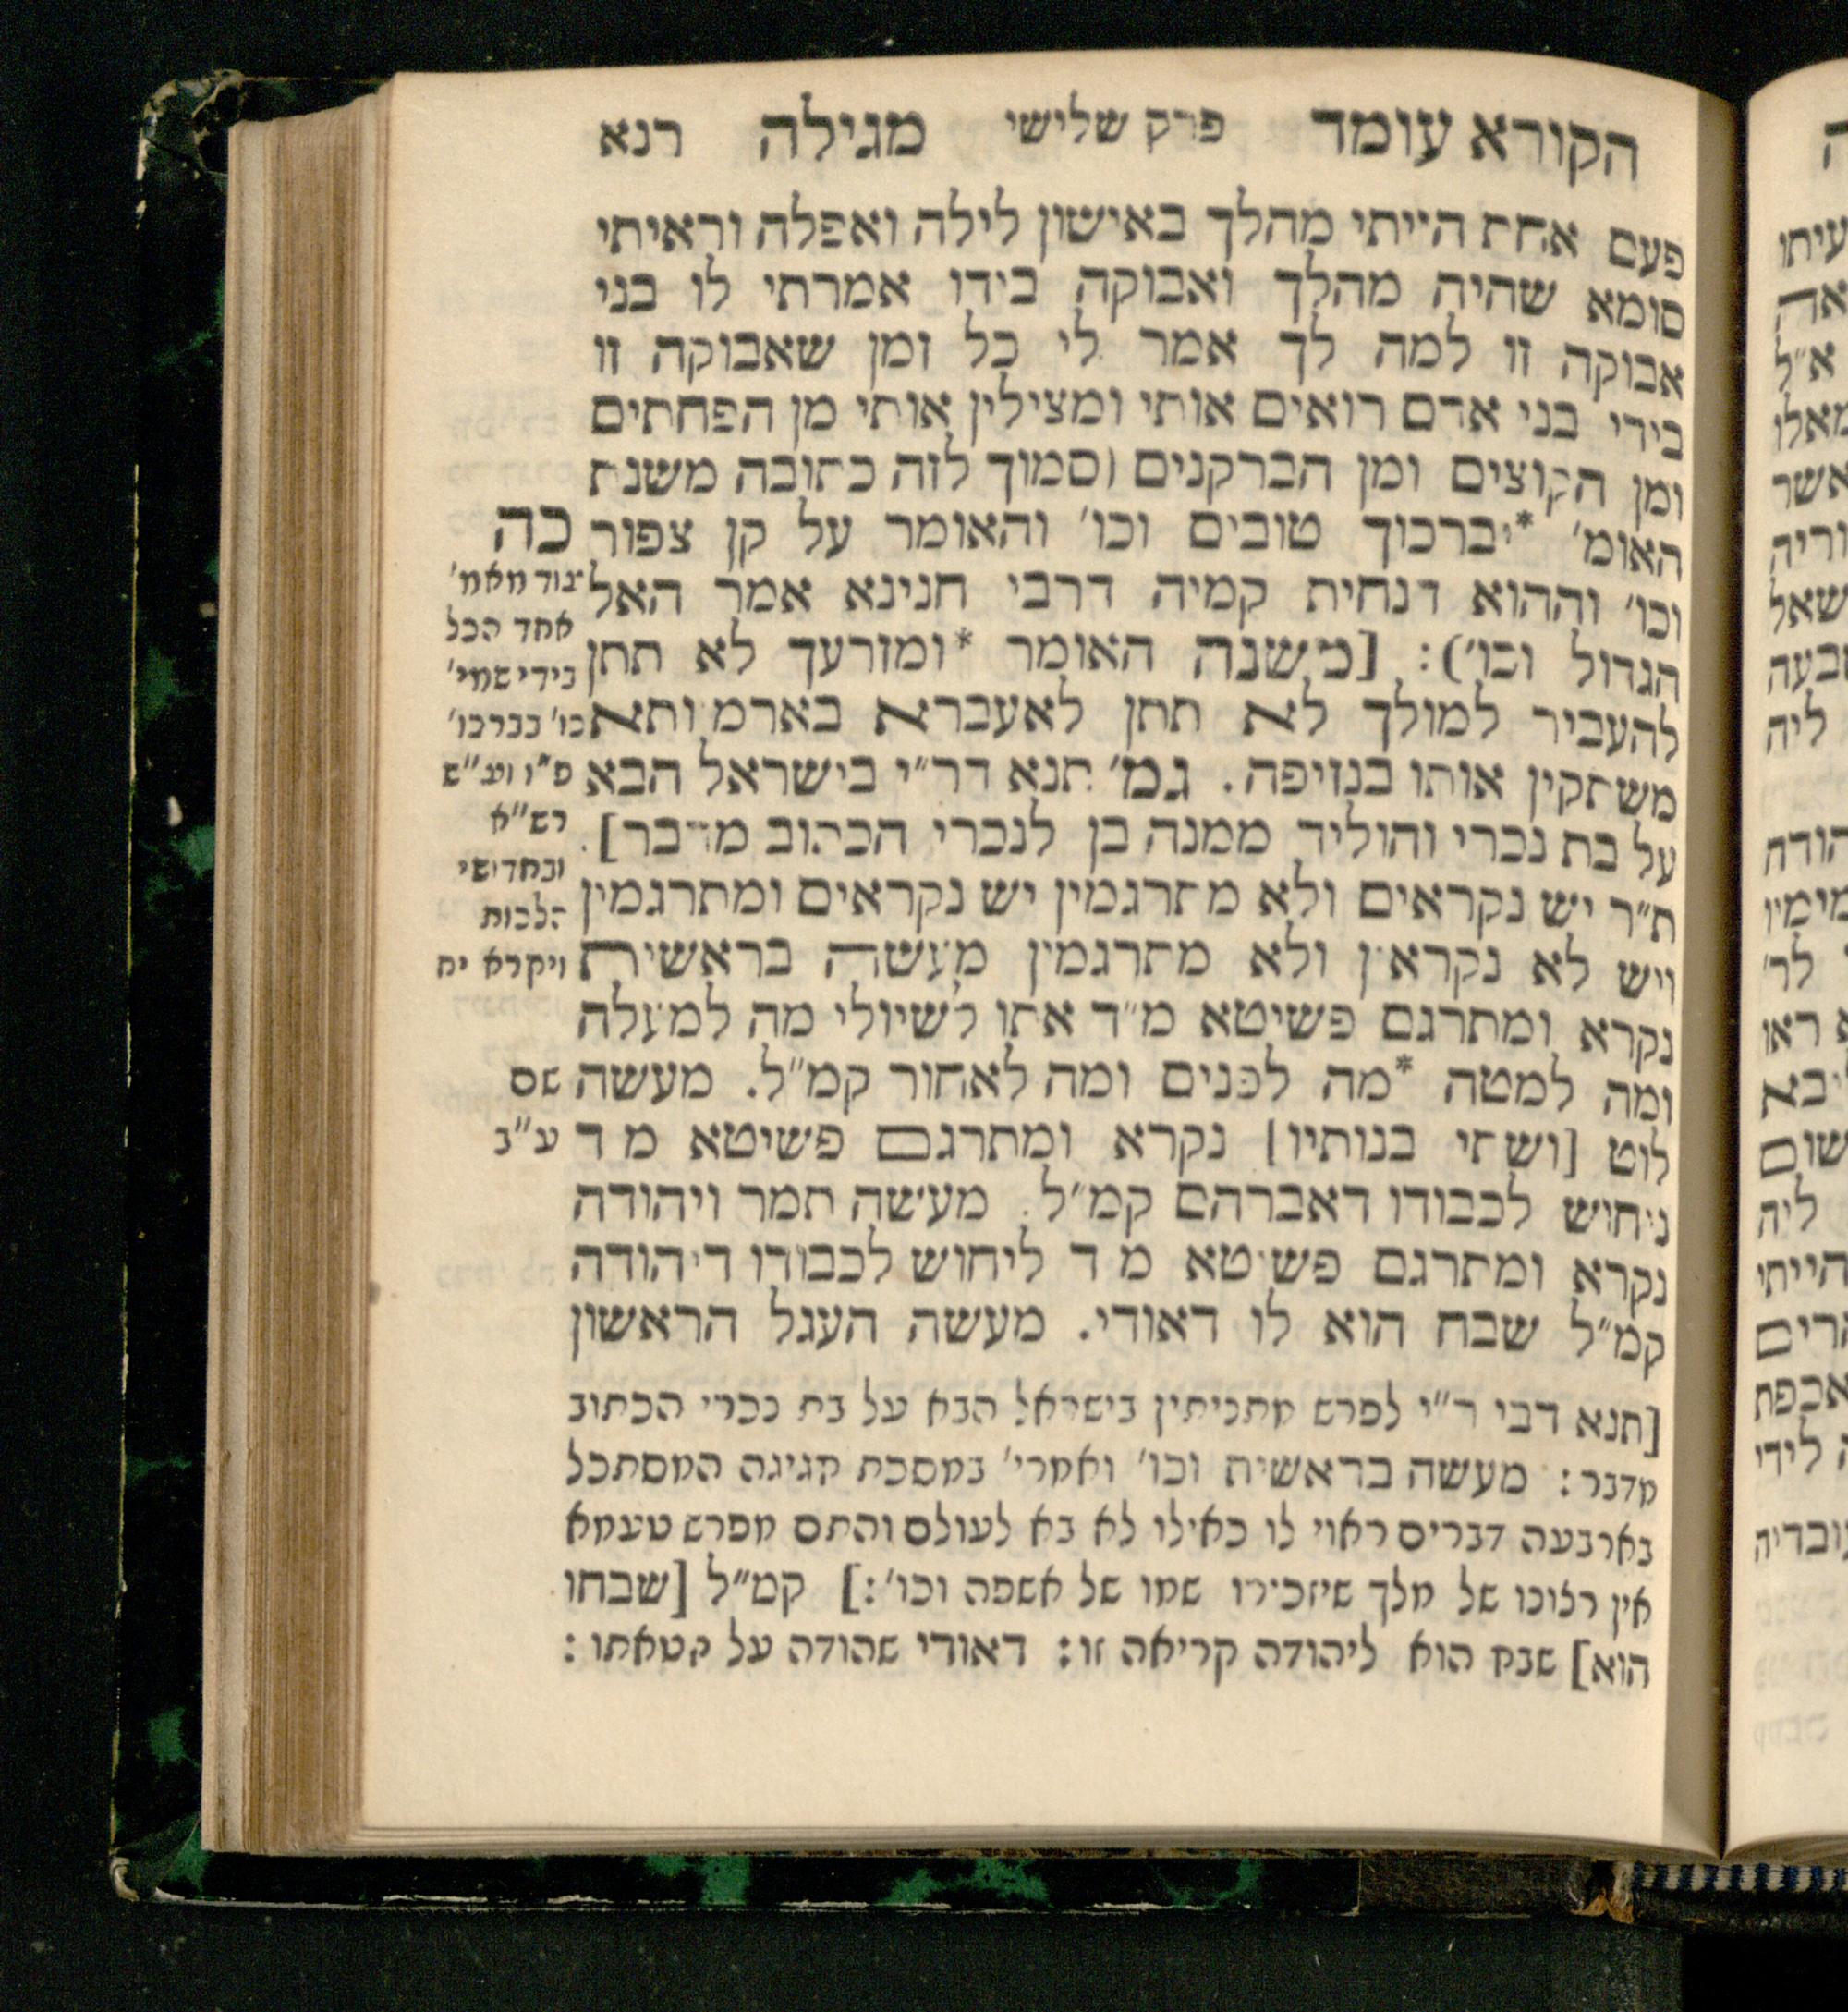 הקורא עומד פרק שלישי מגילה רנא
פעם אחת הייתי מהלך באישון לילה ואפלה וראיתי
סומא שהיה מהלך ואבוקה בידו אמרתי לו בני
אבוקה זו למה לך אמר לי כל זמן שאבוקה זו
בידי בני אדם רואים אותי ומצילין אותי מן הפחתים
ומן הקוצים ומן הברקנים (סמוך לזה כתובה משנת
האומ׳ *יברכוך טובים וכו׳ והאומר על קן צפור
וכו׳ וההוא דנחית קמיה דרבי חנינא אמר האל
הגדול וכו׳): [משנה האומר *ומזרעך לא תתן
להעביר למולך לא תתן לאעברא בארמיותא
משתקין אותו בנזיפה. גמ׳ תנא דר״י בישראל הבא
על בת נכרי והוליד ממנה בן לנכרי הכתוב מדבר].
ת״ר יש נקראים ולא מתרגמין יש נקראים ומתרגמין
ויש לא נקראין ולא מתרגמין מעשה בראשית
נקרא ומתרגם פשיטא מ״ד אתו לשיולי מה למעלה
ומה למטה *מה לפנים ומה לאחור קמ״ל. מעשה
לוט [ושתי בנותיו] נקרא ומתרגם פשיטא מ ד
ניחוש לכבודו דאברהם קמ״ל. מעשה תמר ויהודה
נקרא ומתרגם פשיטא מ ד ליחוש לכבודו דיהודה
קמ״ל שבח הוא לו דאודי. מעשה העגל הראשון
[תנא דבי ר״י לפרש מתניתין בישראל הבא על בת נכרי הכתוב
מדבר: מעשה בראשית וכו׳ ואמרי׳ במסכת חגיגה המסתכל
בארבעה דברים ראוי לו כאילו לא בא לעולם והתם מפרש טעמא
אין רצונו של מלך שיזכירו שמו של אשפה וכו׳:] קמ״ל [שבחו
הוא] שבח הוא ליהודה קריאה זו: דאודי שהודה על חטאתו:
כה
אחד הכל
בידי שמי׳
כו׳ בברכו׳
פ״ו וע״ש
רש״א
ובחדושי
הלכות
ויקרא יח
שם
ע״ב
עיתו
א״ל
אשר
שאל
ליה
הודה
ראו
שום
ליה
הייתי
לידי